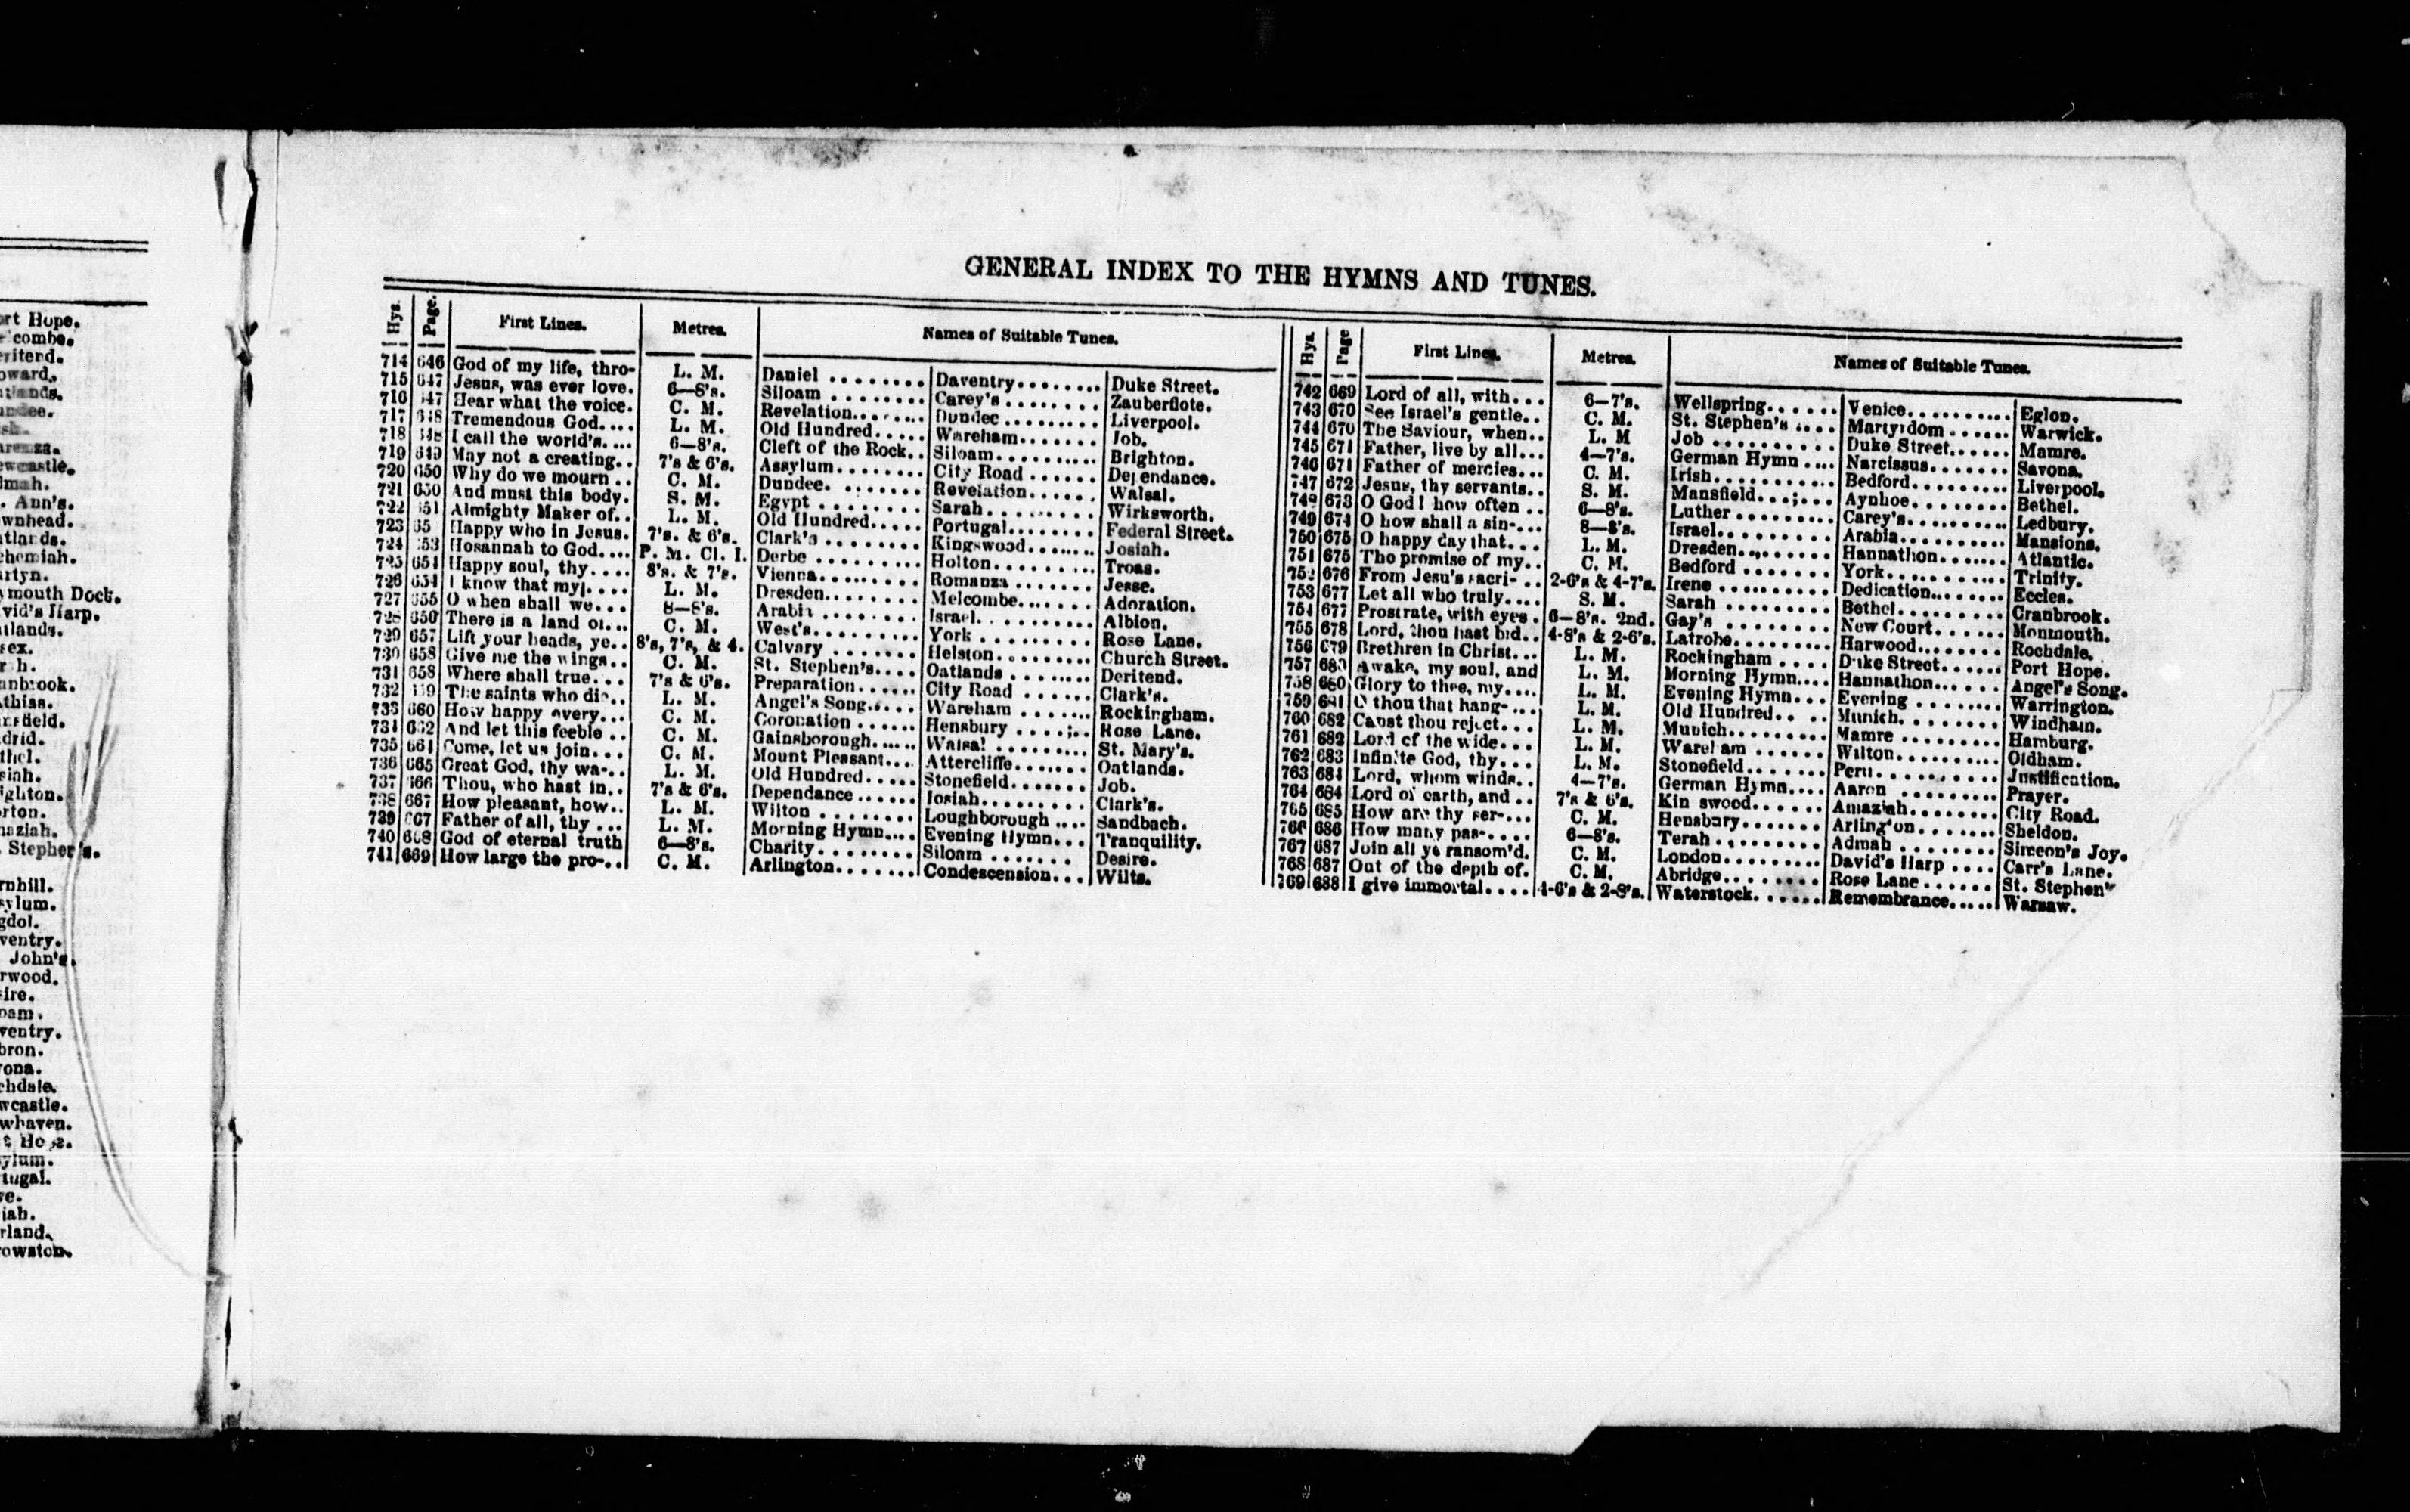 GENERAL INDEX TO THE HYMNS AND TUNES.
Hys. Page. First Lines. Metres. Names of Suitable Tunes.
714 646 God of my life, thro- L. M. Daniel ........ Daventry........ Duke Street.
715 647 Jesus, was ever love. 6—8's. Siloam ........ Carey's ......... Zauberflote.
716 647 Hear what the voice. C. M. Revelation....... Dundee ......... Liverpool.
717 648 Tremendous God.... L. M. Old Hundred..... Wareham....... Job.
718 648 I call the world's.... 6—8's. Cleft of the Rock.. Siloam.......... Brighton.
719 649 May not a creating.. 7's & 6's. Assylum........ City Road ...... Dependance.
720 650 Why do we mourn .. C. M. Dundee. ....... Revelation...... Walsal.
721 650 And must this body. S. M. Egypt ......... Sarah .......... Wirksworth.
722 651 Almighty Maker of.. L. M. Old Hundred..... Portugal....... Federal Street.
723 65 Happy who in Jesus. 7's. & 6's. Clark's ........ Kingswood....... Josiah.
724 653 Hosannah to God.... P. M. Cl. 1. Derbe ......... Holton.......... Troas.
725 654 Happy soul, thy.... 8's. & 7's. Vienna......... Romanza ........ Jesse.
726 654 I know that my.... L. M. Dresden........ Melcombe....... Adoration.
727 655 O when shall we... 8—8's. Arabia ........ Israel.......... Albion.
728 656 There is a land of... C. M. West's......... York .......... Rose Lane.
729 657 Lift your heads, ye.. 8's, 7's, & 4. Calvary ....... Helston......... Church Street.
730 658 Give me the wings.. C. M. St. Stephen's.... Oatlands ........ Deritend.
731 658 Where shall true... 7's & 6's. Preparation...... City Road ...... Clark's.
732 659 The saints who die.. L. M. Angel's Song..... Wareham ....... Rockingham.
733 660 How happy every... C. M. Coronation ...... Hensbury ....... Rose Lane.
734 662 And let this feeble .. C. M. Gainsborough...... Walsal ......... St. Mary's.
735 664 Come, let us join... C. M. Mount Pleasant... Attercliffe....... Oatlands.
736 665 Great God, thy wa-.. L. M. Old Hundred..... Stonefield....... Job.
737 666 Thou, who hast in.. 7's & 6's. Dependance ...... Josiah......... Clark's.
738 667 How pleasant, how.. L. M. Wilton ........ Loughborough .... Sandbach.
739 667 Father of all, thy ... L. M. Morning Hymn.... Evening Hymn... Tranquility.
740 668 God of eternal truth 6—8's. Charity........ Siloam ....... Desire.
741 669 How large the pro-.. C. M. Arlington....... Condescension... Wilts.
Hys. Page First Lines. Metres. Names of Suitable Tunes.
742 669 Lord of all, with... 6—7's. Wellspring...... Venice.......... Eglon.
743 670 See Israel's gentle.. C. M. St. Stephen's .... Martyrdom ...... Warwick.
744 670 The Saviour, when.. L. M Job .......... Duke Street...... Mamre.
745 671 Father, live by all... 4—7's. German Hymn .... Narcissus....... Savona.
746 671 Father of mercies... C. M. Irish........... Bedford......... Liverpool.
747 672 Jesus, thy servants.. S. M. Mansfield....... Aynhoe......... Bethel.
748 673 O God! how often .. 6—8's. Luther ......... Carey's.......... Ledbury.
749 674 O how shall a sin-... 8—8's. Israel.......... Arabia.......... Mansions.
750 675 O happy day that... L. M. Dresden........ Hannathon....... Atlantic.
751 675 The promise of my.. C. M. Bedford ....... York........... Trinity.
752 676 From Jesu's sacri- .. 2-6's & 4-7's. Irene .......... Dedication....... Eccles.
753 677 Let all who truly.... S. M. Sarah ......... Bethel......... Cranbrook.
754 677 Prostrate, with eyes . 6—8's. 2nd. Gay's ........ New Court...... Monmouth.
755 678 Lord, thou hast bid.. 4-8's & 2-6's. Latrobe......... Harwood........ Rochdale.
756 679 Brethren in Christ... L. M. Rockingham .... Duke Street...... Port Hope.
757 680 Awake, my soul, and L. M. Morning Hymn.... Hannathon...... Angel's Song.
758 680 Glory to thee, my.... L. M. Evening Hymn... Evening ........ Warrington.
759 681 O thou that hang-.... L. M. Old Hundred.... Munich......... Windham.
760 682 Canst thou reject... L. M. Munich......... Mamre ......... Hamburg.
761 682 Lord of the wide... L. M. Wareham ...... Wilton.......... Oldham.
762 683 Infinite God, thy... L. M. Stonefield....... Peru........... Justification.
763 684 Lord, whom winds.. 4—7's. German Hymn.... Aaron ......... Prayer.
764 684 Lord of earth, and .. 7's & 6's. Kin swood...... Amaziah........ City Road.
765 685 How are thy ser-... C. M. Hensbury....... Arlington....... Sheldon.
766 686 How many pas-.... 6—8's. Terah ......... Admah ......... Simeon's Joy.
767 687 Join all ye ransom'd. C. M. London......... David's Harp .... Carr's Lane.
768 687 Out of the depth of. C. M. Abridge........ Rose Lane ...... St. Stephen'
769 688 I give immortal.... 4-6's & 2-8's. Waterstock...... Remembrance..... Warsaw.